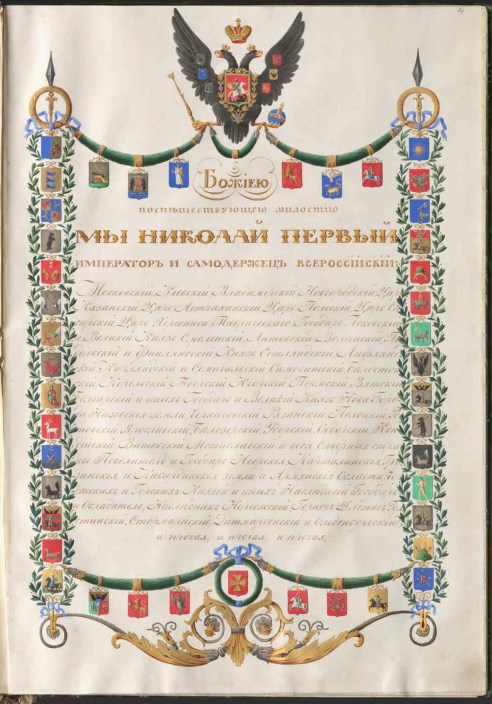 Божіею
поспѣшествующею милостію
МЫ НИКОЛАЙ ПЕРВЫЙ
ИМПЕРАТОРЪ И САМОДЕРЖЕЦЪ ВСЕРОССІЙСКІЙ:
Московскій, Кіевскій, Владимірскій, Новгородскій, Царь
Казанскій, Царь Астраханскій, Царь Польскій, Царь Си
бирскій, Царь Херсониса Таврическаго, Государь Псковскій
и Великій Князь Смоленскій, Литовскій, Волынскій, По
дольскій и Финляндскій, Князь Эстляндскій, Лифлянд
скій, Курляндскій и Семигальскій, Самогитскій, Бѣлосток
скій, Корельскій, Тверскій, Югорскій, Пермскій, Вятскій,
Болгарскій и иныхъ; Государь и Великій Князь Нова города
Низовскія земли, Черниговскій, Рязанскій, Полоцкій,
Ростовскій, Ярославскій, Бѣлозерскій, Удорскій, Обдорскій, Кон
дійскій, Витебскій, Мстиславскій и всея Сѣверныя страны
Повелитель и Государь Иверскія, Карталинскія, Гру
зинскія и Кабардинскія земли и Армянскія Области; Чер
касскихъ и Горскихъ Князей и иныхъ Наслѣдный Государь
и Обладатель; Наслѣдникъ Норвежскій, Герцогъ Шлезвигъ-Гол
стинскій, Стормарнскій, Дитмарсенскій и Ольденбургскій
и прочая, и прочая, и прочая.